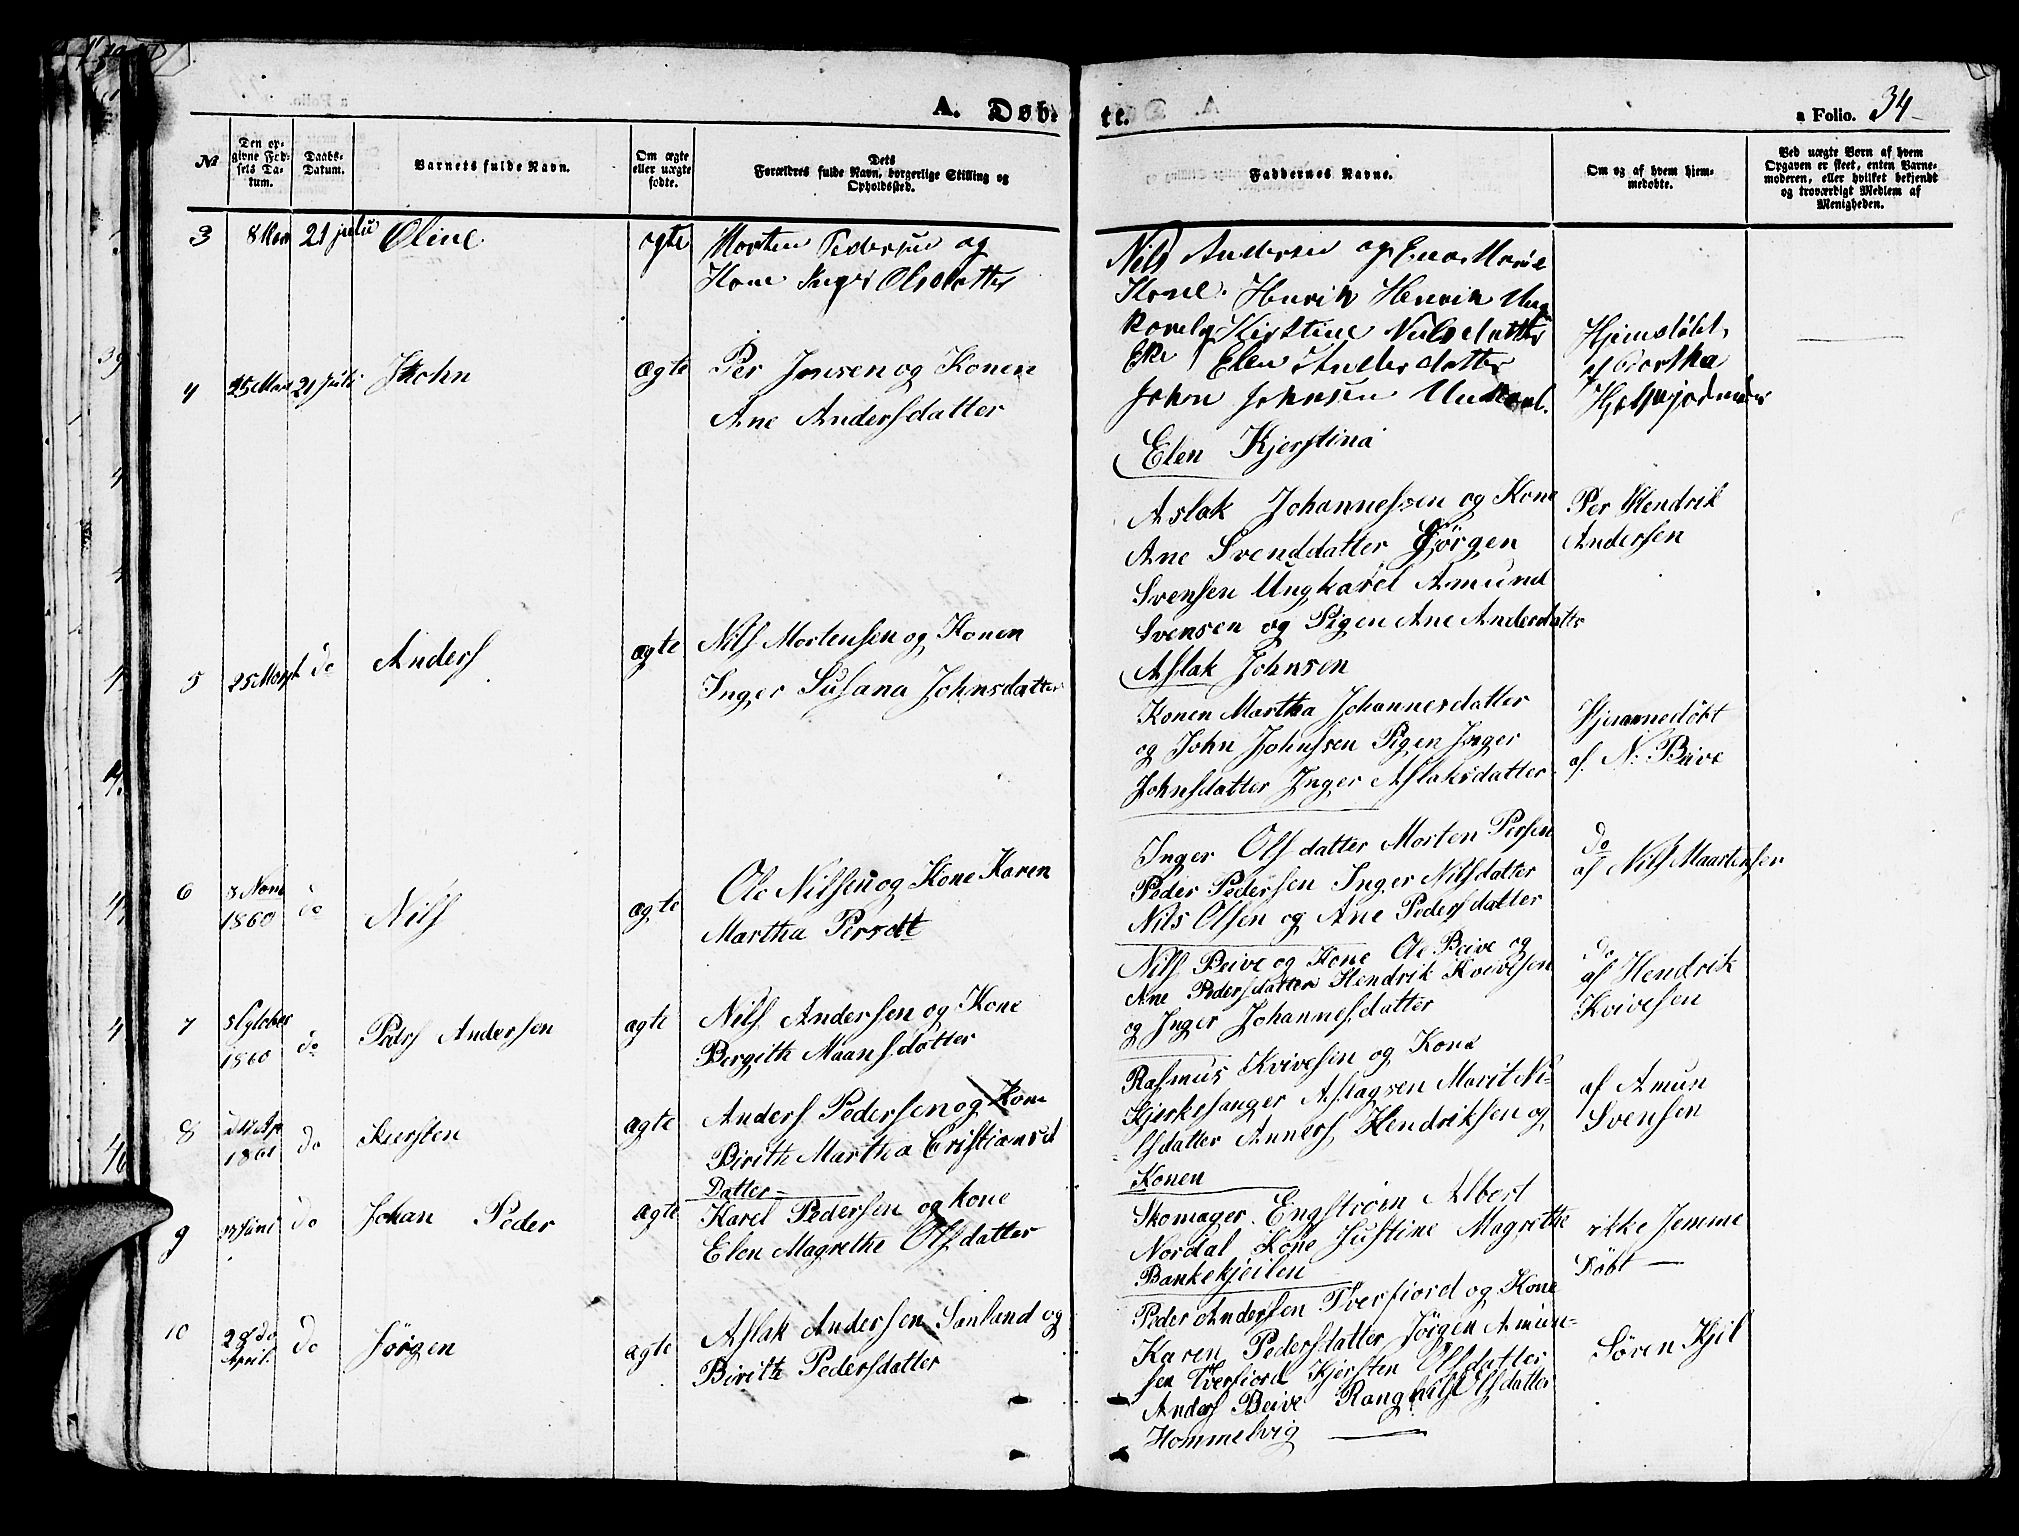 A. Døb- te. a Folio. 34
№ Den opgivne Fødsels Datum. Daabs-Datum. Barnets fulde Navn. Om ægte eller uægte fødte. Dets Forældres fulde Navn, borgerlige Stilling og Opholdssted. Faddernes Navne. Om og af hvem hjemmedøbte. Ved uægte Børn af hvem Opgaven er skeet, enten Barnemoderen, eller hvilket bekjendt og troværdigt Medlem af Menigheden.
3 8 Mar 21 juli Oline ægte Morten Pedersen og
Kone Inger Olsdatter
Nils Andersen og Ena Marie
Kone. Henrik Henrik Ung
karel Kirstine Nilsdatter
Elen Andersdatter
John Johnsen Unkarl.
Hjemdøbt
af
4 25 Mar 21 Juli John ægte Per Jonsen og Konen
Ane Andersdatter
Elen Kjerstina
Aslak Johannessen og Kone
Ane Svenddatter Jörgen
Svensen Ungkarel Amund
Svensen og Pigen Ane Andersdatte
Per Hendrik
Andersen
5 25 Marts do Anders ægte Nils Mortensen og Konen
Inger Susana Johnsdatter
Aslak Johnsen
Konen Martha Johannesdatter
og John Johnsen Pigen Inger
Johnsdatter Inger Aslaksdatter
Hjemmedöbt
af N. Beive
6 8 Novm 1860 do Nils ægte Ole Nilsen og Kone Karen
Martha Persdtt
Inger Olsdatter Morten Persen
Peder Pedersen Inger Nilsdatter
Nils Olsen og Ane Pedersdatter
do
af Nils Maartensen
7 1860 do Peders Andersen ægte Nils Andersen og Kone
Bergith Maansdatter
Nils Beive og Kone Ole Beive og
Ane Pedersdatter Hendrik Kvivesen
og Inger Johannesdatter
do
af Hendrik
Kvivesen
8 1861 do Kiersten ægte Anders Pedersen og Kone
Birith Martha Cristiansd
Datter
Rasmus Kvivesen og Kone
Kjerkesanger Aslagsen Marit Ni-
lsdatter Anners Hendriksen og
Konen
af Amun
Svensen
9 13 Juni do Johan Peder ægte Karel Pedersen og kone
Elen Magrethe Olsdatter
Skomager Engström Albert
Nordal Kone Justine Magrethe
Bankekjeilen
ikke Jemme
Döbt
10 28 do April do Jörgen ægte Aslak Andersen Sanland og
Birith Pedersdatter
Peder Andersen Tverfiord og Kone
Karen Pedersdatter Jörgen Amun-
sen Tverfiord Kjersten Olsdatter
Anders Beive Ranghild Olsdatter
Hommelvig
Sören Kjil